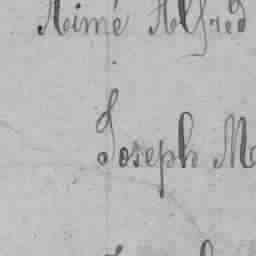 Aimé Alfred
Joseph M